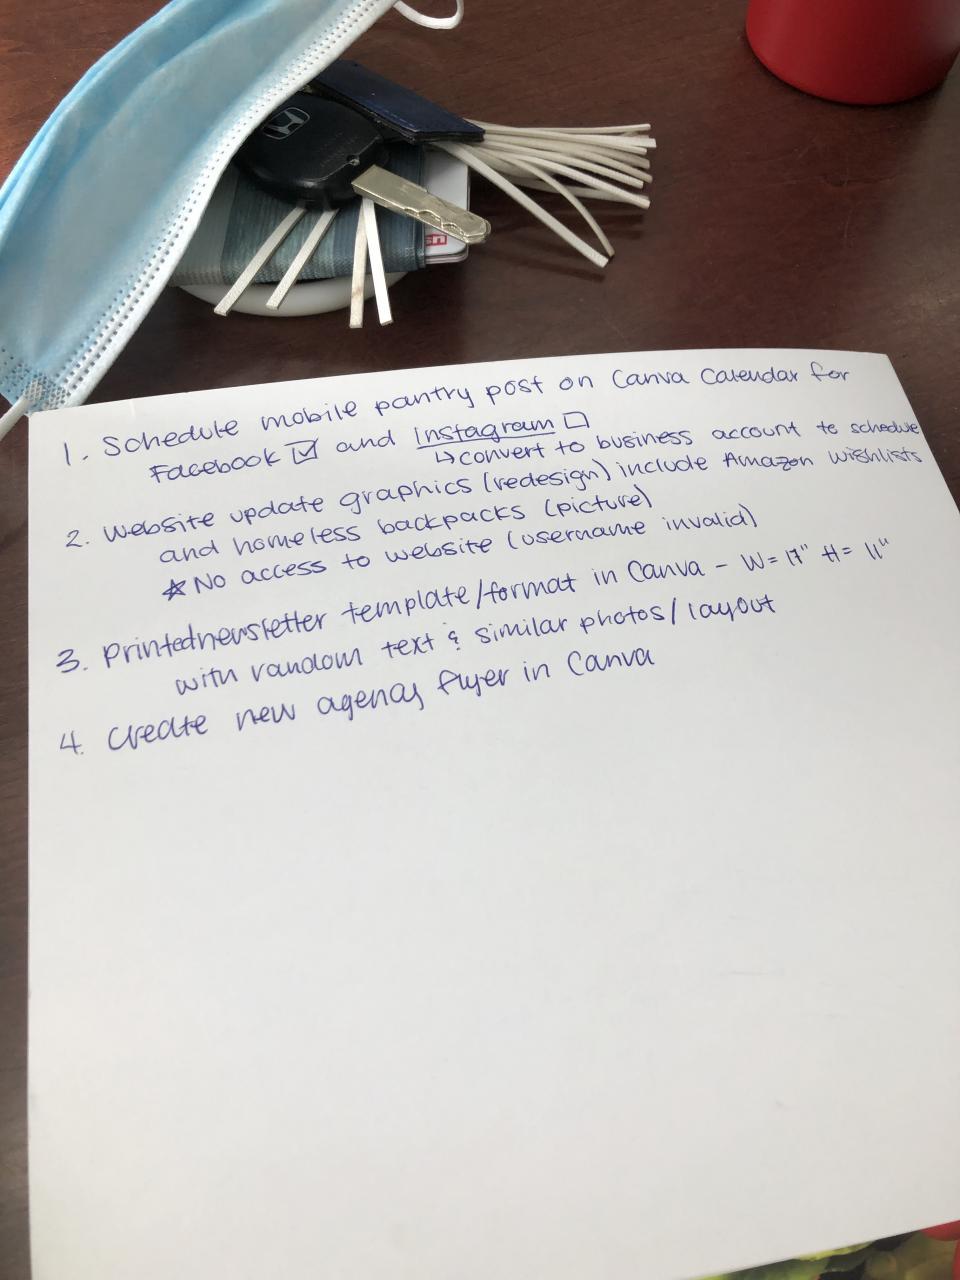 1. Schedule mobile pantry post on Canva Calendar for
Facebook ☑ and Instagram ☐
↳ convert to business account to schedule
2. Website update graphics (redesign) include Amazon wishlists
and homeless backpacks (picture)
☆ No access to website (username invalid)
3. Printed newsletter template/format in Canva - W = 17" H = 11"
with random text & similar photos/layout
4. Create new agency flyer in Canva